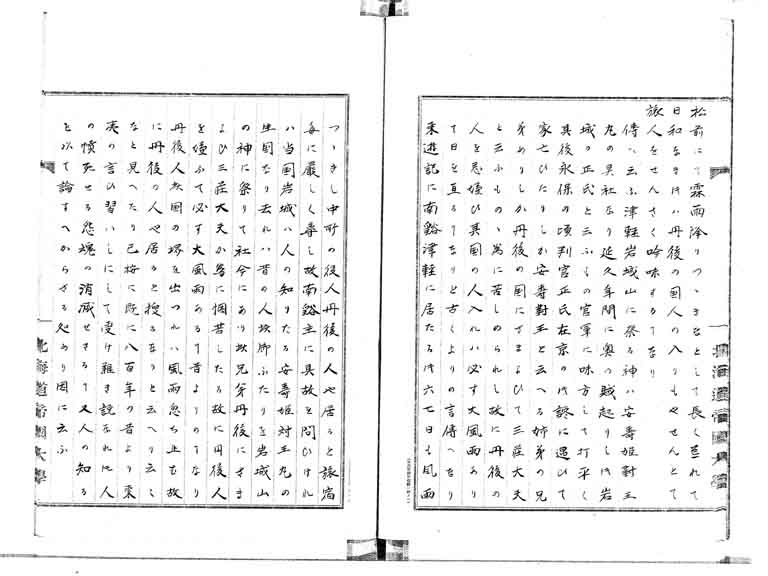 松前にて霖雨降りつゝきなとして長く荒れて
日和なき時ハ丹後の国人の入りもやせんとて
旅人をせんさく吟味するてなり
傳に云ふ津軽岩城山に祭る神ハ安壽姫對王
丸の具社なり延久年間に奥の賊起りし時岩
城の正氏と云ふもの官軍に味方して打平く
其後永保の頃判官正氏在京の時讒に遇ひて
家亡ひたりしか安壽對王と云へる姉弟の兄
弟ありしか丹後の国にさまよひて三荘大夫
と云ふものゝ為に苦しめられし故に丹後の
人を忌嫌ひ其国の人入れハ必す大風雨あり
て日を直るてなりと古くよりの言傳へなり
東遊記に南谿津軽に居たる時六七日も風雨
つゝきし中所の役人丹後の人や居ると旅宿
毎に厳しく尋し故南谿主に其故を問ひけれ
ハ当国岩城ハ人の知りたる安壽姫対王丸の
生国なり去れハ昔の人此御ふたりを岩城山
の神に祭りて社今にあり此兄弟丹後にさま
よひ三荘大夫か為に困苦したる故に丹後人
を嫌ふて必す大風雨あるて昔よりのてなり
丹後人此国の堺を出つれハ風雨忽ち止む故
に丹後の人や居ると捜るなりと云へり云々
なと見へたり已に既に八百年の昔より来
夷の言ひ習ハしにして受け難き説なれ他人
の憤死せる怨魂の消滅せさるて又人の知る
を以て論すへからさる処あり因に云ふ
北海道帝国大學
北海道帝國大學